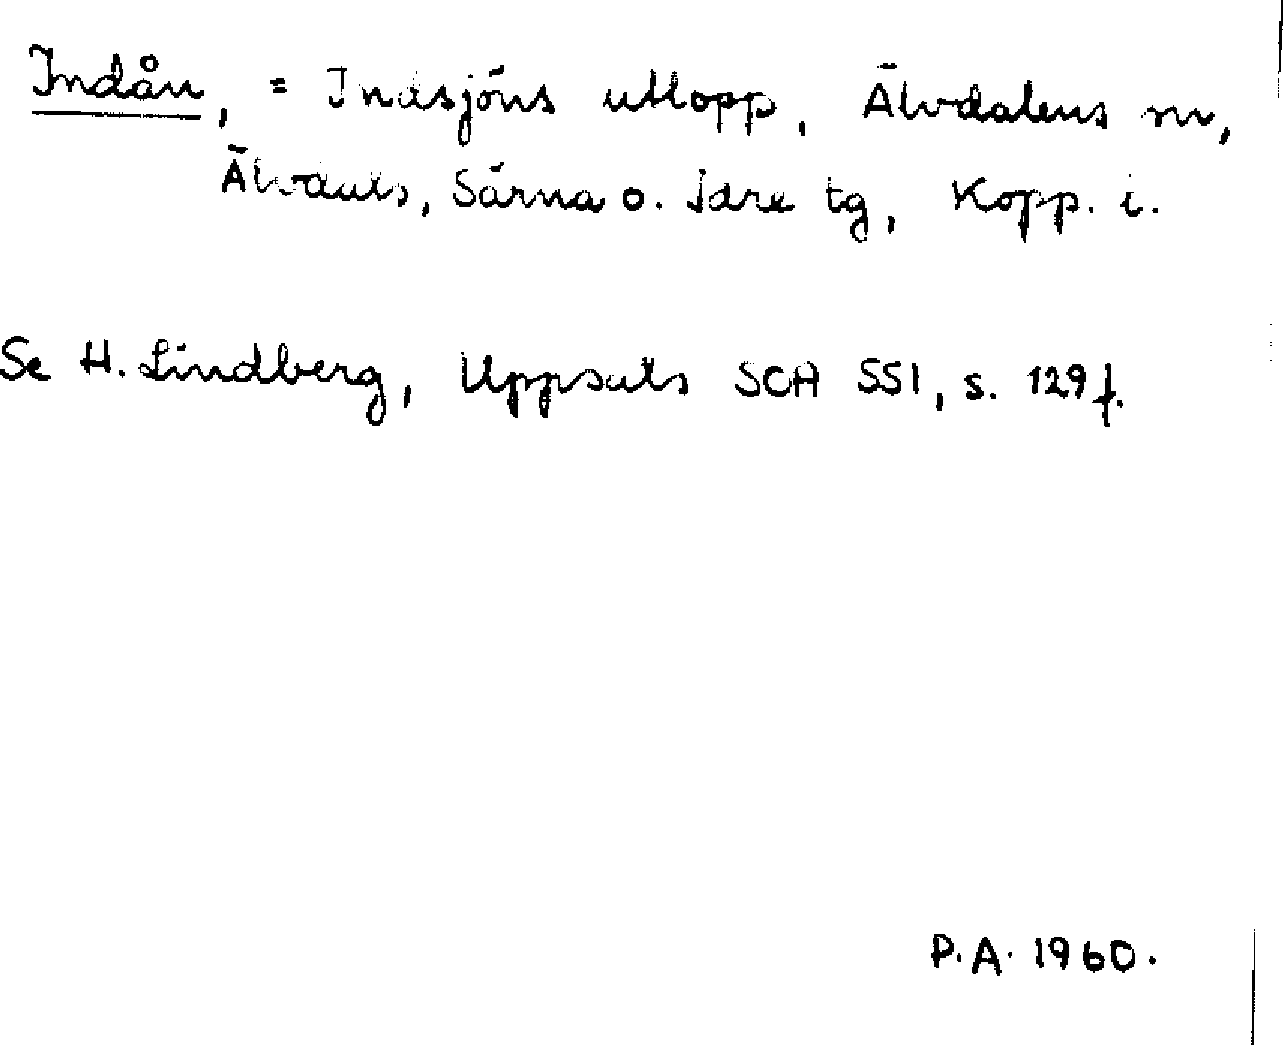 Indån, = Indsjöns utlopp, Älvdalens sn,
Älvdals, Särna o. Idre tg, Kopp. l.
Se H. Lindberg, Uppsats SCH SSI, s. 129 f.
P.A. 1960.